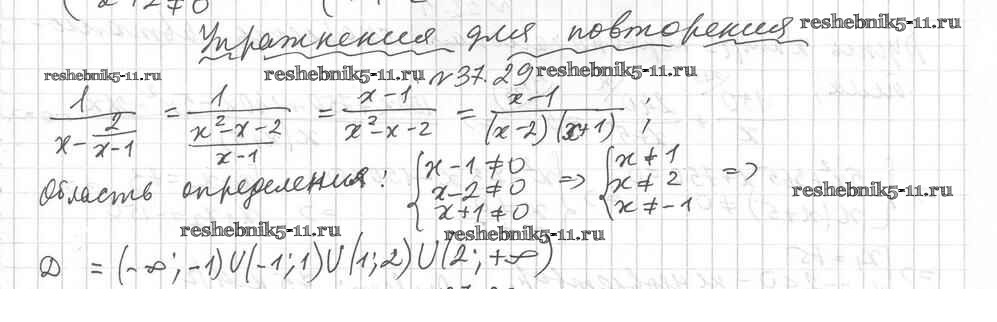 x+2≠0 (
Упражнения для повторения reshebnik5-11.ru
reshebnik5-11.ru reshebnik5-11.ru №37.29 reshebnik5-11.ru
1/(x - 2/(x-1)) = 1/((x²-x-2)/(x-1)) = (x-1)/(x²-x-2) = (x-1)/((x-2)(x+1)) ;
Область определения: { x-1≠0 x-2≠0 x+1≠0 => { x≠1 x≠2 x≠-1 =>
reshebnik5-11.ru
reshebnik5-11.ru reshebnik5-11.ru
D = (-∞;-1)U(-1;1)U(1;2)U(2;+∞)